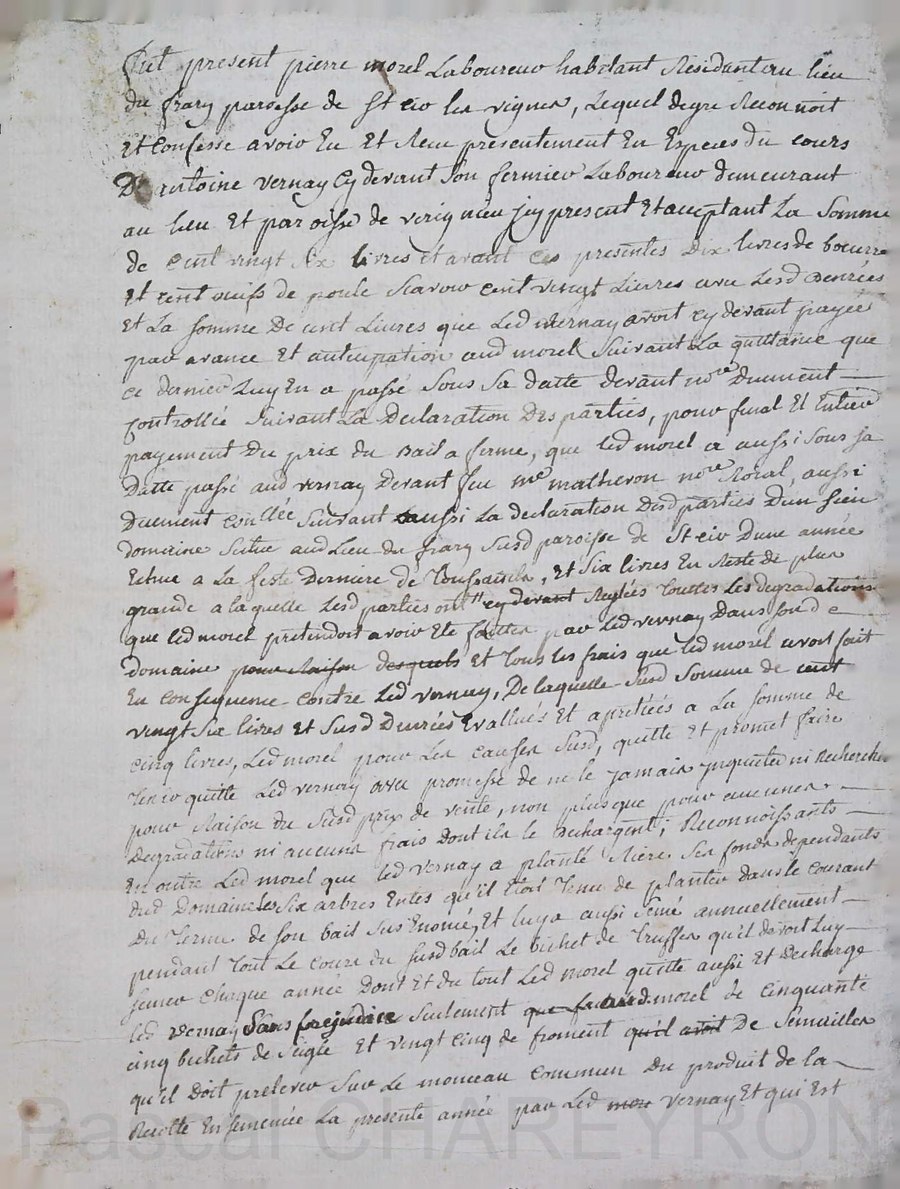 fut present pierre morel Laboureur habitant Residant au lieu
du frary paroisse de St cir les vignes, Lequel de gre Reconnoit
Et Confesse avoir Eu Et Receu presentement En Especes du cours
D' antoine vernay Cy devant Son fermier Laboureur demeurant
au lieu Et paroisse de verignieu icy present Et acceptant La Somme
de Cent vingt six livres et avant ces presentes Dix livres de beurre
Et cent oeufs de poule Scavoir Cent vingt Livres avec Lesd Denrées
Et La somme De cent Livres que Led vernay avoit cy devant payée
par avance Et anticipation aud morel Suivant La quittance que
ce dernier Luy En a passé Sous Sa datte devant nore Duement
Controllée Suivant La Declaration Des parties, pour final Et Entier
payement Du prix du Bail a ferme, que led morel a aussi Sous Sa
Datte passé aud vernay Devant feu me matheron nore Roial, aussi
Duement Conllée Suivant aussi La declaration Desd parties D'un Sien
domaine Scitue aud Lieu du frary Susd paroisse de St cir D'une année
Echue a La feste Derniere de Toussaints, Et Six livres En Reste de plus
grande a laquelle Lesd parties ont cy devant Reglées Toutes Les degradations
que led morel pretendoit avoir Eté faittes par Led vernay Dans Son d
domaine pour Raison desquels Et Tous les frais que Led morel avoit fait
En Consequence Contre Led vernay, De laquelle Susd Somme de cent
vingt Six livres Et Susd Denrées Evalluées Et apretiées a La Somme de
Cinq livres, Led morel pour Les causes Susd, quitte Et promet faire
Tenir quitte Led vernay avec promesse de ne le jamais inquieter ni Rechercher
pour Raison du Susd prix de vente, non plus que pour aucunes
Degradations ni aucuns frais Dont ils le Dechargent; Reconnoissants
En outre Led morel que led vernay a planté Riere Ses fonds dependants
Dud Domaine les Six arbres Entes qu'il Etoit Tenu de planter dans le Courant
Du Terme de Son bail Sus Enoncé, Et luy a aussi Semé annuellement
pendant Tout Le Cours du Susd bail Le bichet de Truffes qu'il devoit Luy
Semer Chaque année Dont Et du tout Led morel quitte aussi Et Decharge
Led vernay Sans prejudice Seulement aud. morel de Cinquante
Cinq bichets de Seigle Et vingt Cinq de froment qu'il avoit De Semailles
qu'il Doit prelever Sur Le monceau Commun Du produit de la
Recolte Ensemencée La presente année par Led mor vernay Et qui Est
Pascal CHAREYRON